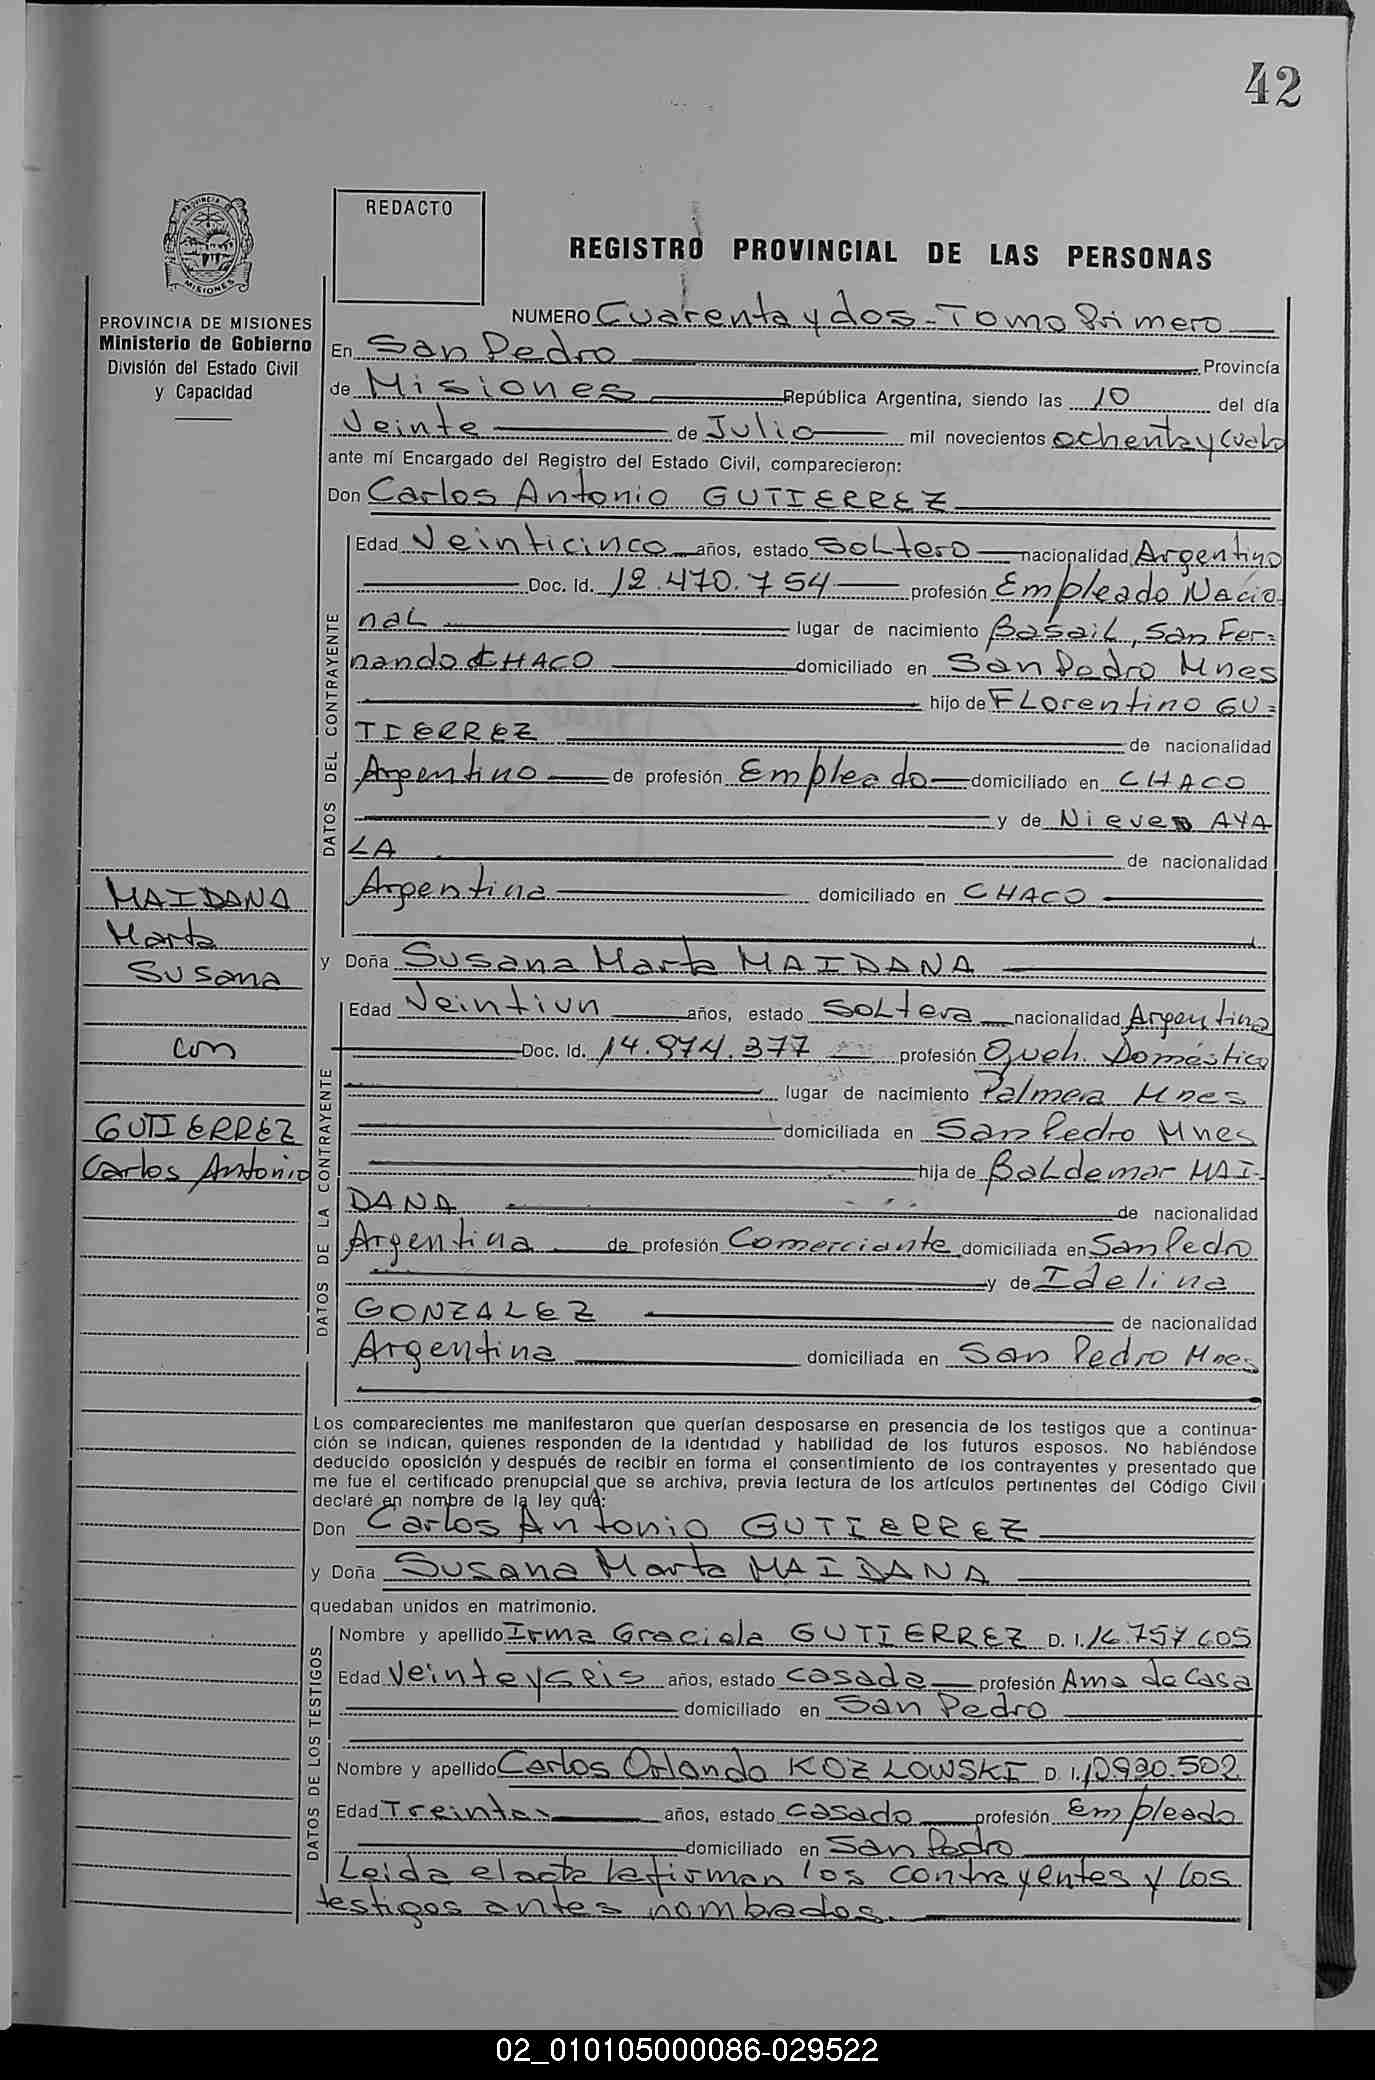 42
PROVINCIA DE
MISIONES
REDACTO
REGISTRO PROVINCIAL DE LAS PERSONAS
PROVINCIA DE MISIONES
Ministerio de Gobierno
División del Estado Civil
y Capacidad
NUMERO Cuarenta y dos - Tomo Primero
En San Pedro Provincia
de Misiones República Argentina, siendo las 10 del día
Veinte de Julio mil novecientos ochenta y cuatro
ante mí Encargado del Registro del Estado Civil, comparecieron:
Don Carlos Antonio GUTIERREZ
DATOS DEL CONTRAYENTE
Edad Veinticinco años, estado Soltero nacionalidad Argentino
Doc. Id. 12.470.754 profesión Empleado Nacio-
nal lugar de nacimiento Basail, San Fer=
nando CHACO domiciliado en San Pedro Mnes
hijo de Florentino GU=
TIERREZ de nacionalidad
Argentino de profesión Empleado domiciliado en CHACO
y de Nieves AYA
LA de nacionalidad
Argentina domiciliado en CHACO
MAIDANA
Marta
Susana
con
GUTIERREZ
Carlos Antonio
y Doña Susana Marta MAIDANA
DATOS DE LA CONTRAYENTE
Edad Veintiun años, estado Soltera nacionalidad Argentina
Doc. Id. 14.974.377 profesión Queh. Doméstico
lugar de nacimiento Palmera Mnes
domiciliada en San Pedro Mnes
hija de Baldemar MAI-
DANA de nacionalidad
Argentina de profesión Comerciante domiciliada en San Pedro
y de Idelina
GONZALEZ de nacionalidad
Argentina domiciliada en San Pedro Mnes
Los comparecientes me manifestaron que querían desposarse en presencia de los testigos que a continua-
ción se indican, quienes responden de la identidad y habilidad de los futuros esposos. No habiéndose
deducido oposición y después de recibir en forma el consentimiento de los contrayentes y presentado que
me fue el certificado prenupcial que se archiva, previa lectura de los artículos pertinentes del Código Civil
declaré en nombre de la ley que:
Don Carlos Antonio GUTIERREZ
y Doña Susana Marta MAIDANA
quedaban unidos en matrimonio.
DATOS DE LOS TESTIGOS
Nombre y apellido Irma Graciela GUTIERREZ D. I. 16.757.605
Edad Veinte y seis años, estado casada profesión Ama de Casa
domiciliado en San Pedro
Nombre y apellido Carlos Orlando KOZLOWSKI D. I. 10920.502
Edad Treinta años, estado casado profesión Empleado
domiciliado en San Pedro
Leida el acta la firman los contrayentes y los
testigos antes nombrados.
02_010105000086-029522